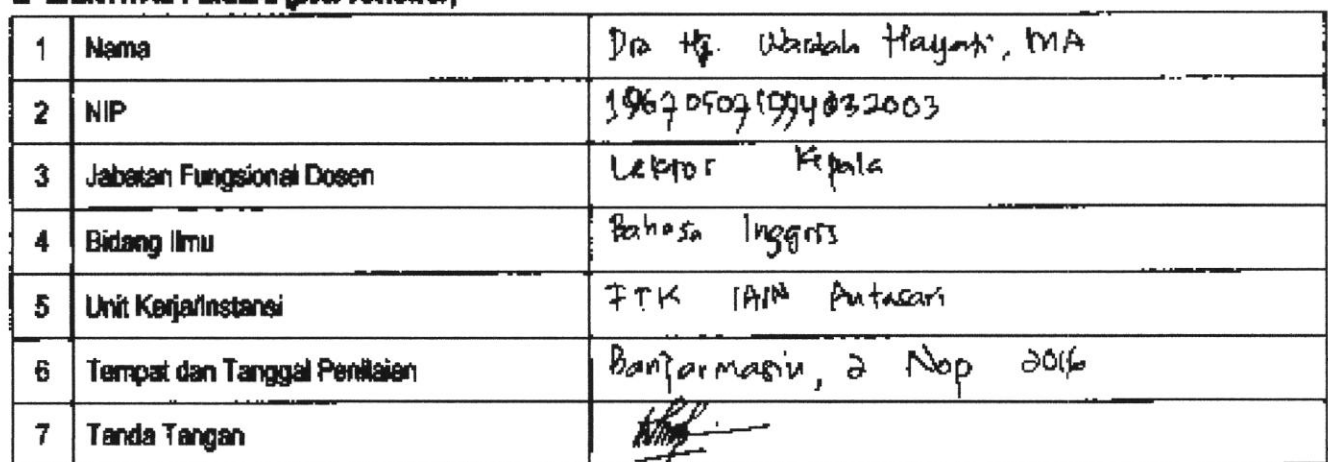 1 Nama Dra Hj. Wardah Hayati, MA
2 NIP 196705071994032003
3 Jabatan Fungsional Dosen Lektor Kepala
4 Bidang Ilmu Bahasa Inggris
5 Unit Kerja/Instansi FTK IAIN Antasari
6 Tempat dan Tanggal Penilaian Banjarmasin, 2 Nop 2016
7 Tanda Tangan